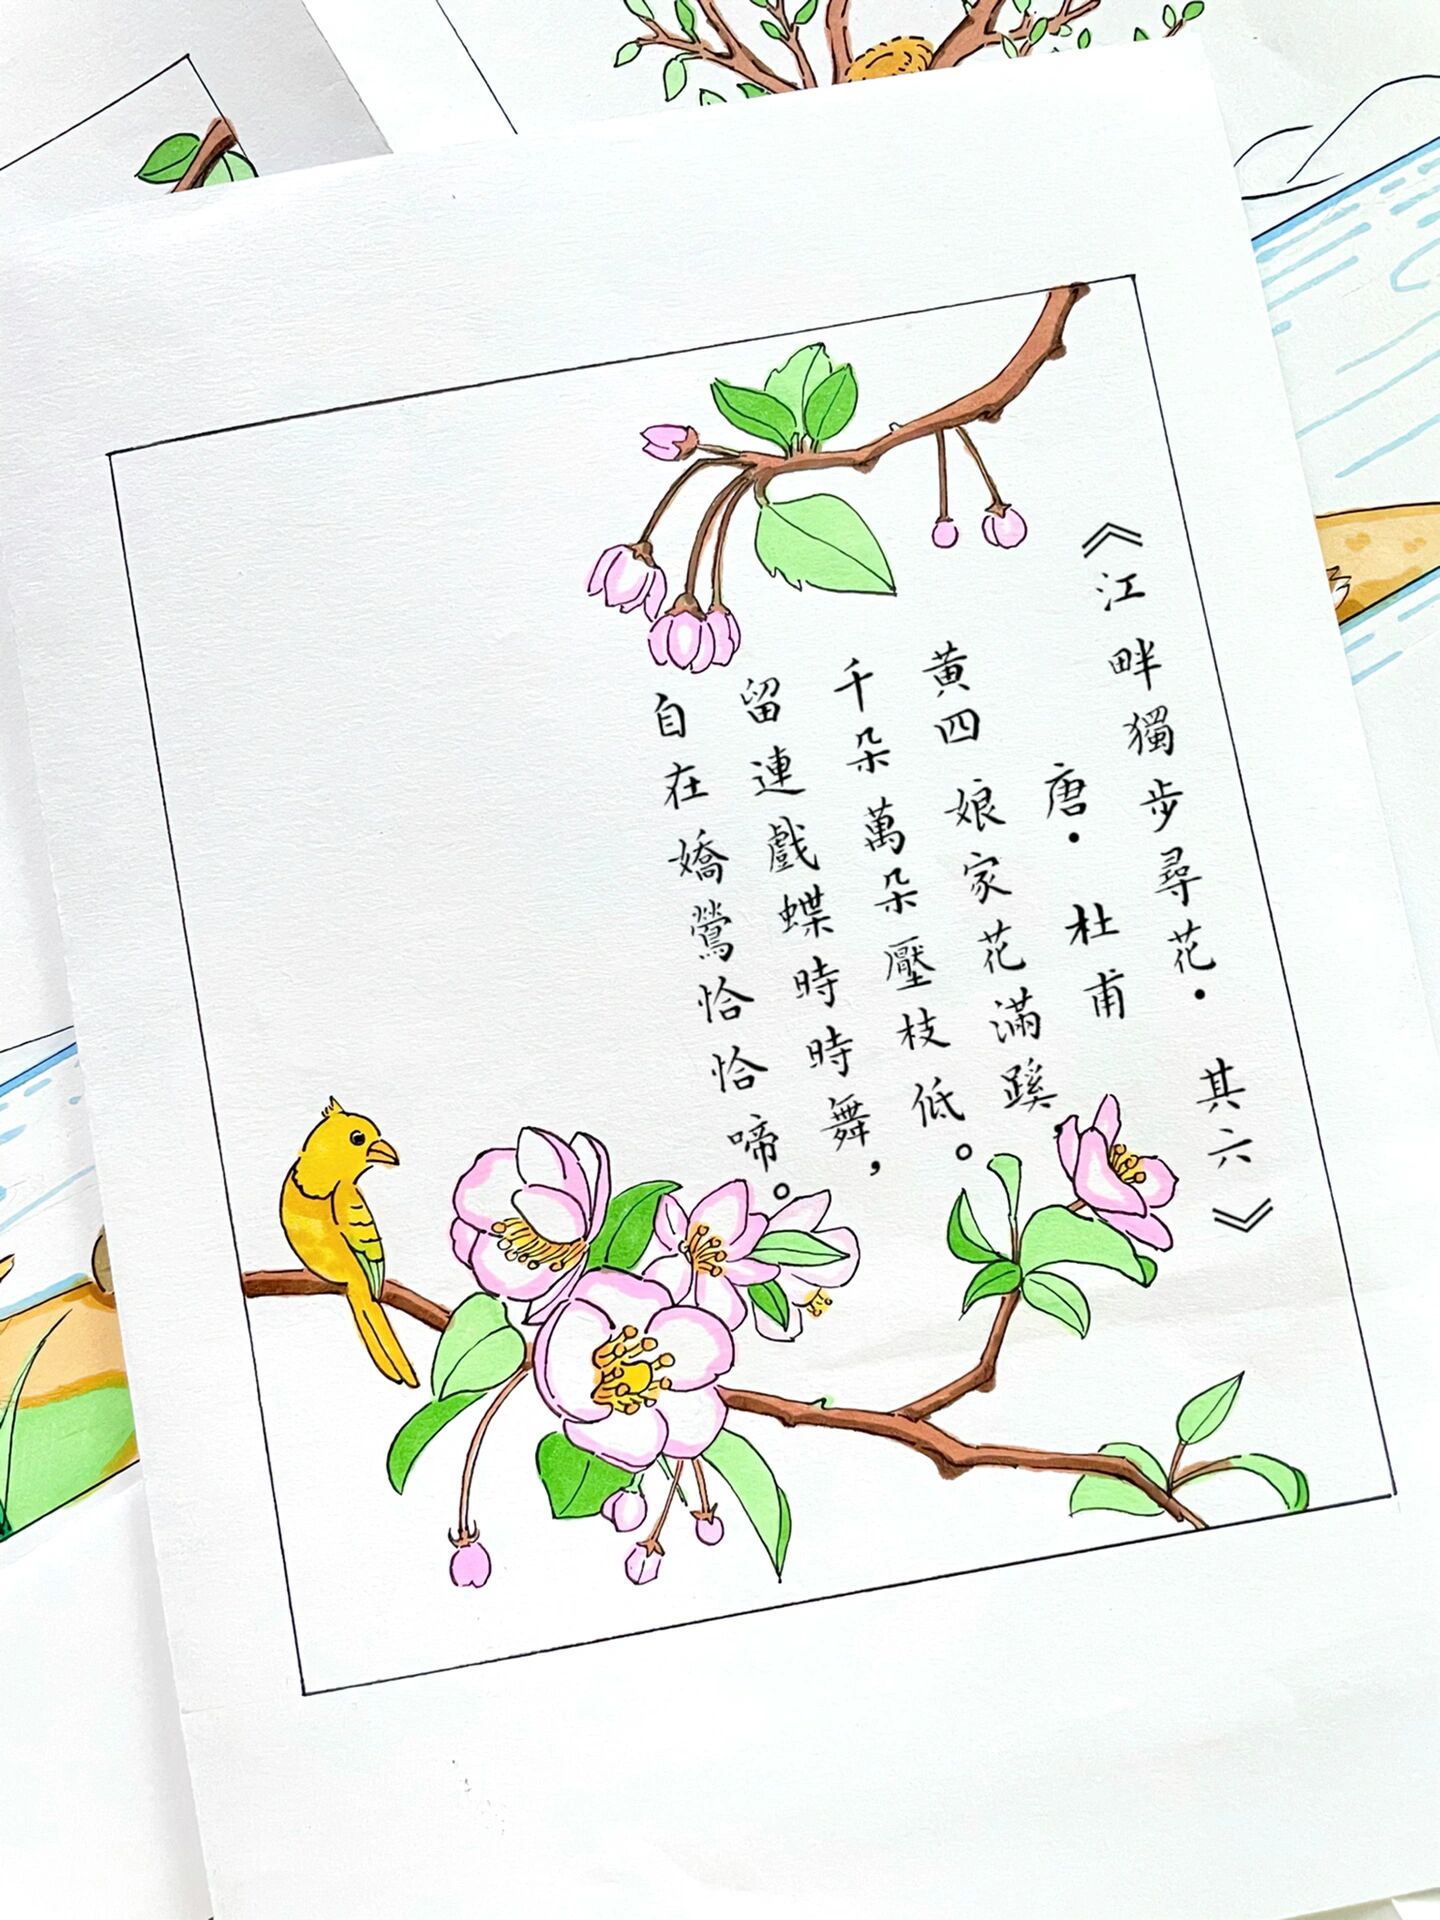 《江畔獨步尋花·其六》
唐·杜甫
黄四娘家花滿蹊，
千朵萬朵壓枝低。
留連戲蝶時時舞，
自在嬌鶯恰恰啼。